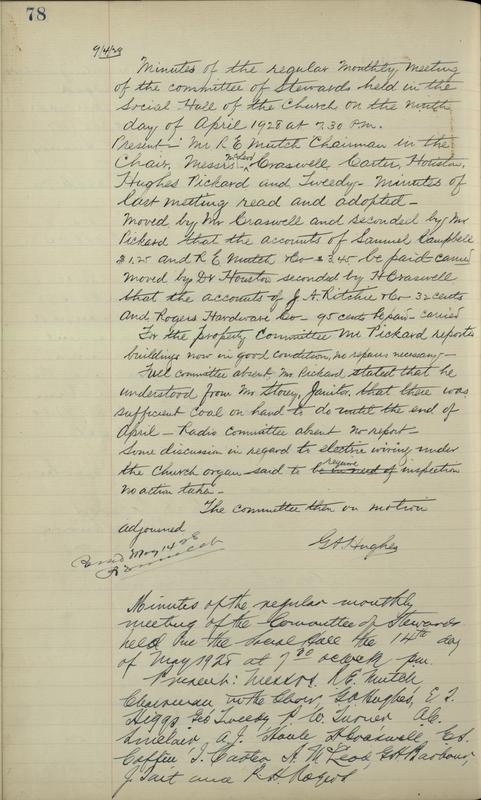 78
9/4/28
Minutes of the regular Monthly meeting
of the committee of Stewards held in the
Social Hall of the Church on the ninth
day of April 1928 at 7.30 P.M.
Present - Mr R E Mutch Chairman in the
Chair, Messrs McLeod Craswell Carter, Houston,
Hughes Pickard and Tweedy - Minutes of
last meeting read and adopted -
Moved by Mr Craswell and seconded by Mr
Pickard that the accounts of Samuel Campbell
$1.25 and R E Mutch & Co $3.45 be paid carried
Moved by Dr Houston seconded by H Craswell
that the accounts of J A Ritchie & Co - 32 cents
and Rogers Hardware Co - 95 cents be paid - carried
For the property Committee Mr Pickard reported
buildings now in good condition, no repairs necessary -
Fuel committee absent, Mr Pickard stated that he
understood from Mr Storey, Janitor, that there was
sufficient coal on hand to do until the end of
April - Radio Committee absent no report -
Some discussion in regard to electric wiring under
the Church organ said to be in need of require inspection
no action taken -
The committee then on motion
adjourned
May 14 28
G A Hughes
Minutes of the regular monthly
meeting of the Committee of Stewards
held in the Social Hall the 14th day
of May 1928 at 7 30 oclock pm.
Present: Messrs. R.E. Mutch
Chairman in the Chair, G A Hughes, E. T.
Higgs Geo Tweedy P. W. Turner A.C.
Sinclair A. J. Craswell, E.S.
Coffin T. Carter A. McLeod, G.H. Barbour,
J. Tait and R H Rogers